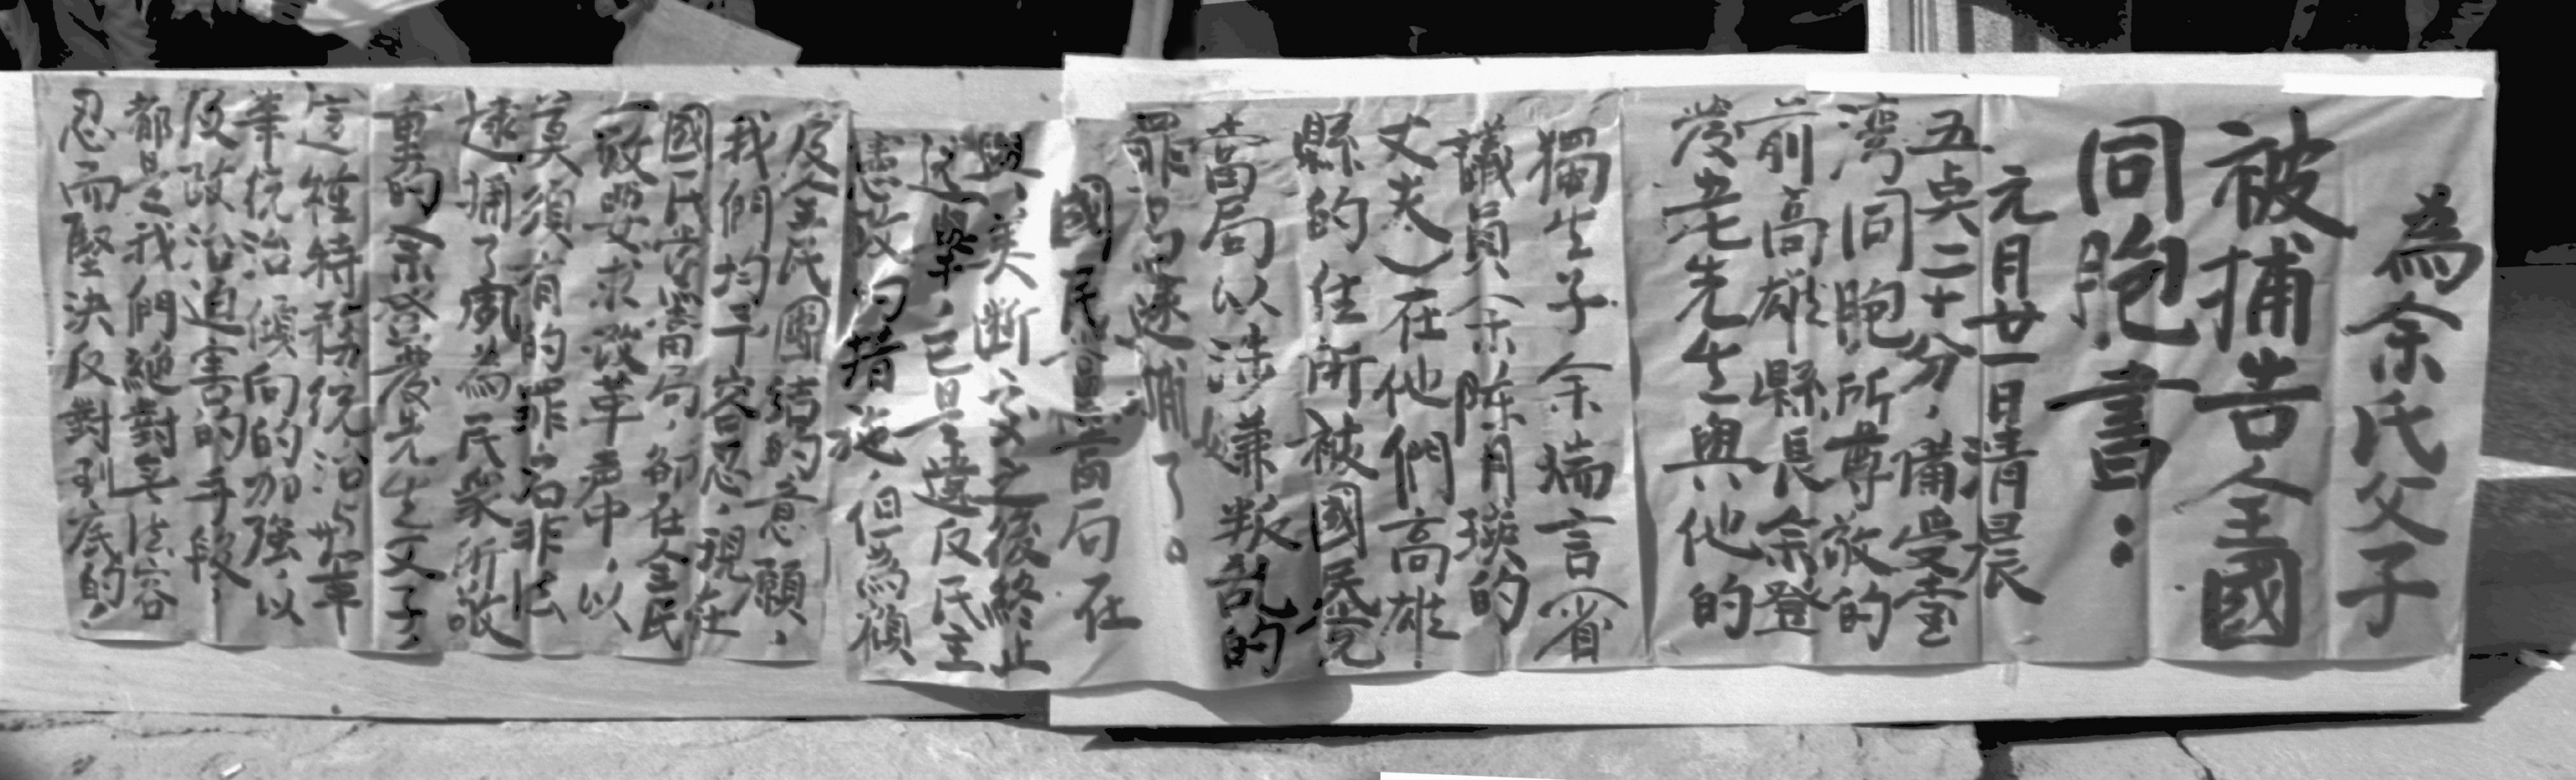 為余氏父子
被捕告全國
同胞書：
元月廿一日清晨
五点二十分，備受臺
湾同胞所尊敬的
前高雄縣長余登
發老先生與他的
獨生子余瑞言（省
議員余陳月瑛的
丈夫）在他們高雄
縣的住所被國民党
當局以涉嫌叛乱的
罪名逮捕了。
國民黨當局在
與美断交之後終止
選舉，已是違反民主
憲政的措施，但為顧
及全民團結的意願，
我們均予容忍，現在
國民党當局，卻在全民
一致要求改革声中，以
莫須有的罪名非法
逮捕了夙為民眾所敬
重的余登發先生父子，
這種特務統治与軍
事統治傾向的加強，以
及政治迫害的手段，
都是我們絕對無法容
忍而堅決反對到底的，